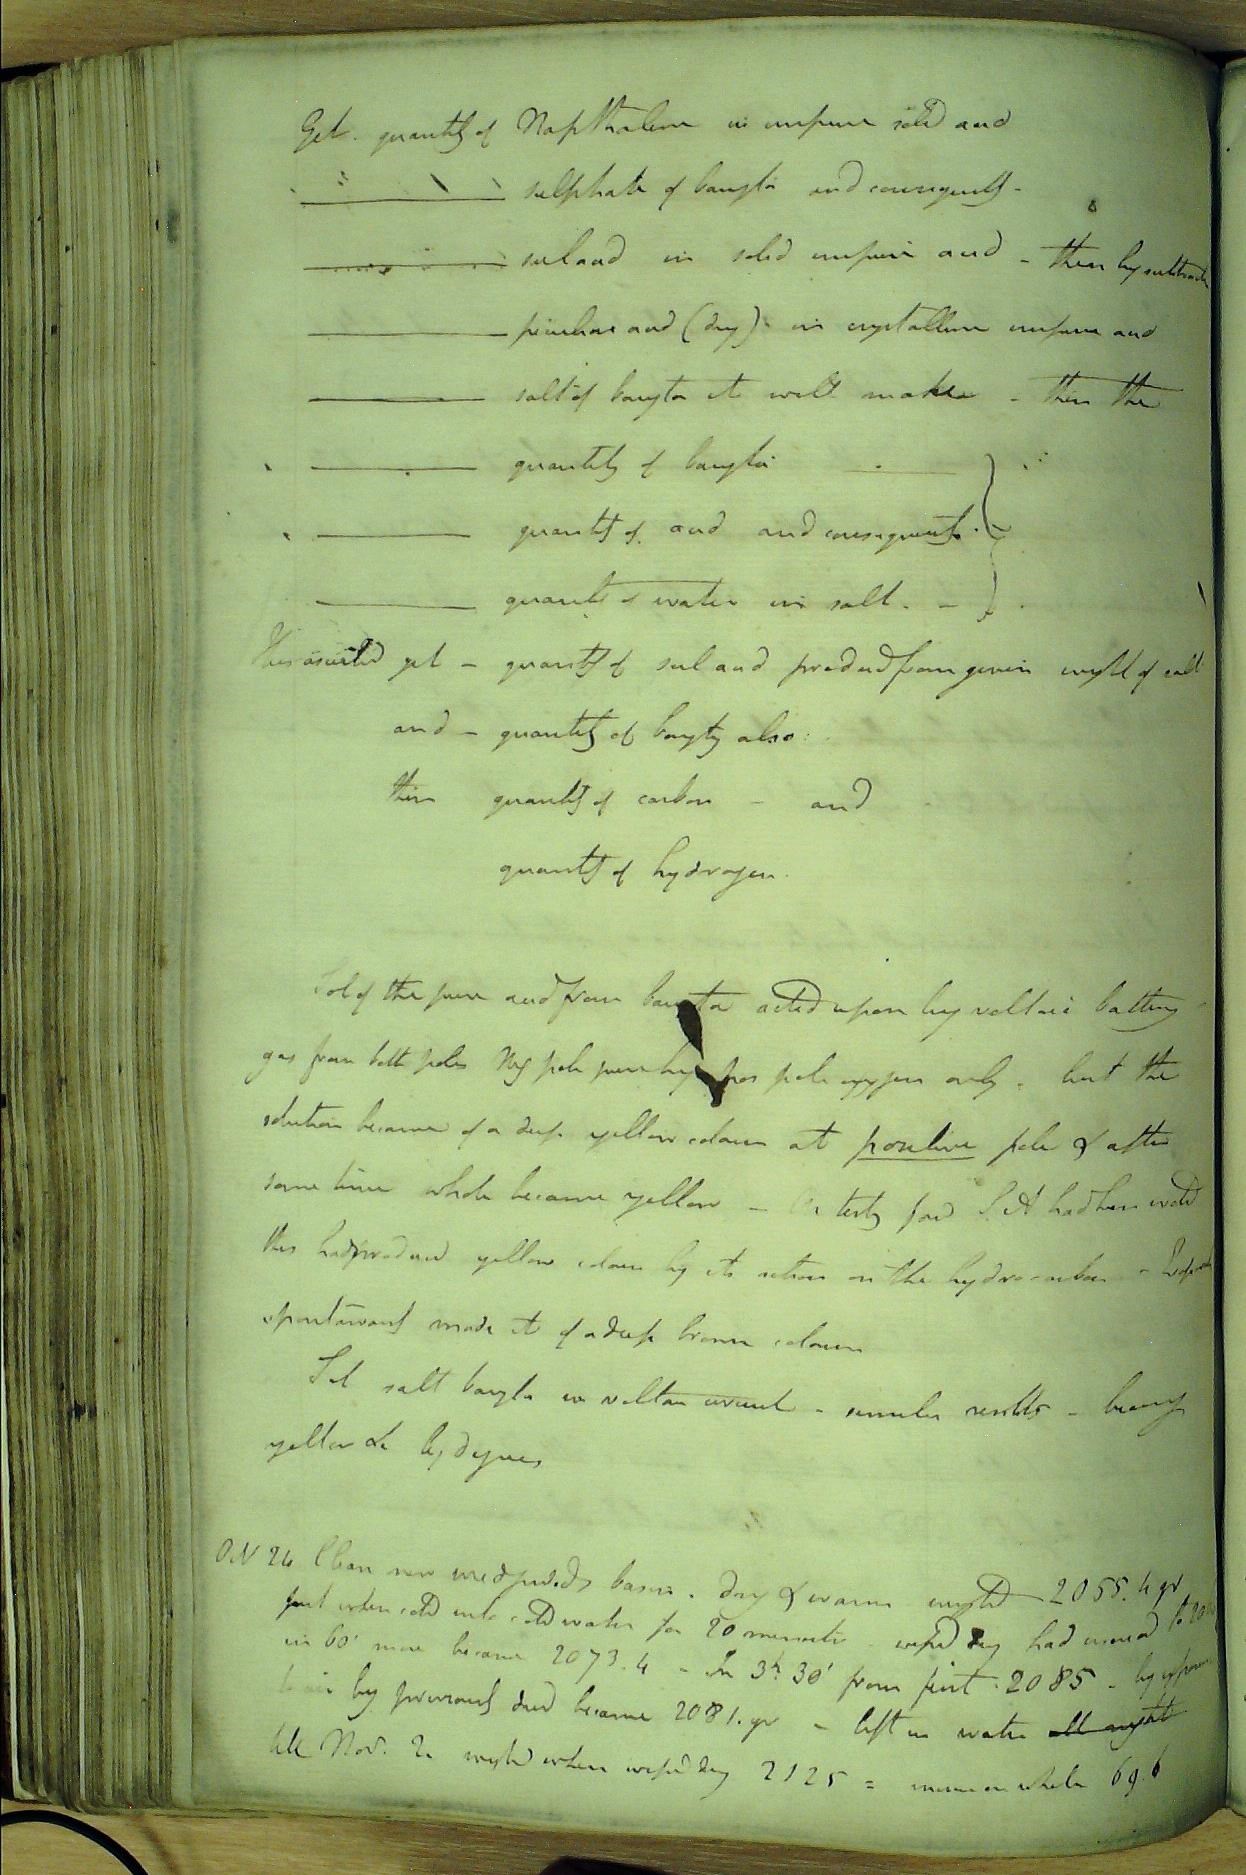 Get. quantity of Napthalene in impure solid acid
———— sulphate of baryta and consequently -
———— sul acid in solid impure acid - then by subtraction
———— peculiar acid (dry) in crystalline impure acid
———— salt of baryta it will make - then the
———— quantity of baryta ————
———— quantity of acid and consequently
———— quantity of water in salt. -
get - quantity of sul acid produced from given weight of salt
and - quantity of baryta also
then quantity of carbon - and
quantity of hydrogen.
Sol of the pure acid from baryta acted upon by voltaic battery
gas from both poles Neg pole pure hy pos pole oxygen only. but the
solution became of a deep yellow colour at positive pole & after
some time whole became yellow - tests S. A had been
this had produced yellow colour by its action on the hydro carbon -
spontaneously made it of a deep brown colour
Sol salt baryta in voltaic circuit - similar results - becoming
yellow &c by degrees
Oct 26 Clean new basin. dry & warm weighed 2055.4 gr
put when cold into cold water for 20 minutes wiped dry had increased to
in 60' more became 2073.4 - In 3h 30' from first 2085 - by exposure
to air by previously dried became 2081. gr - left in water all night
till Nov. 2 weighed when wiped dry 2125 = increase on whole 69.6